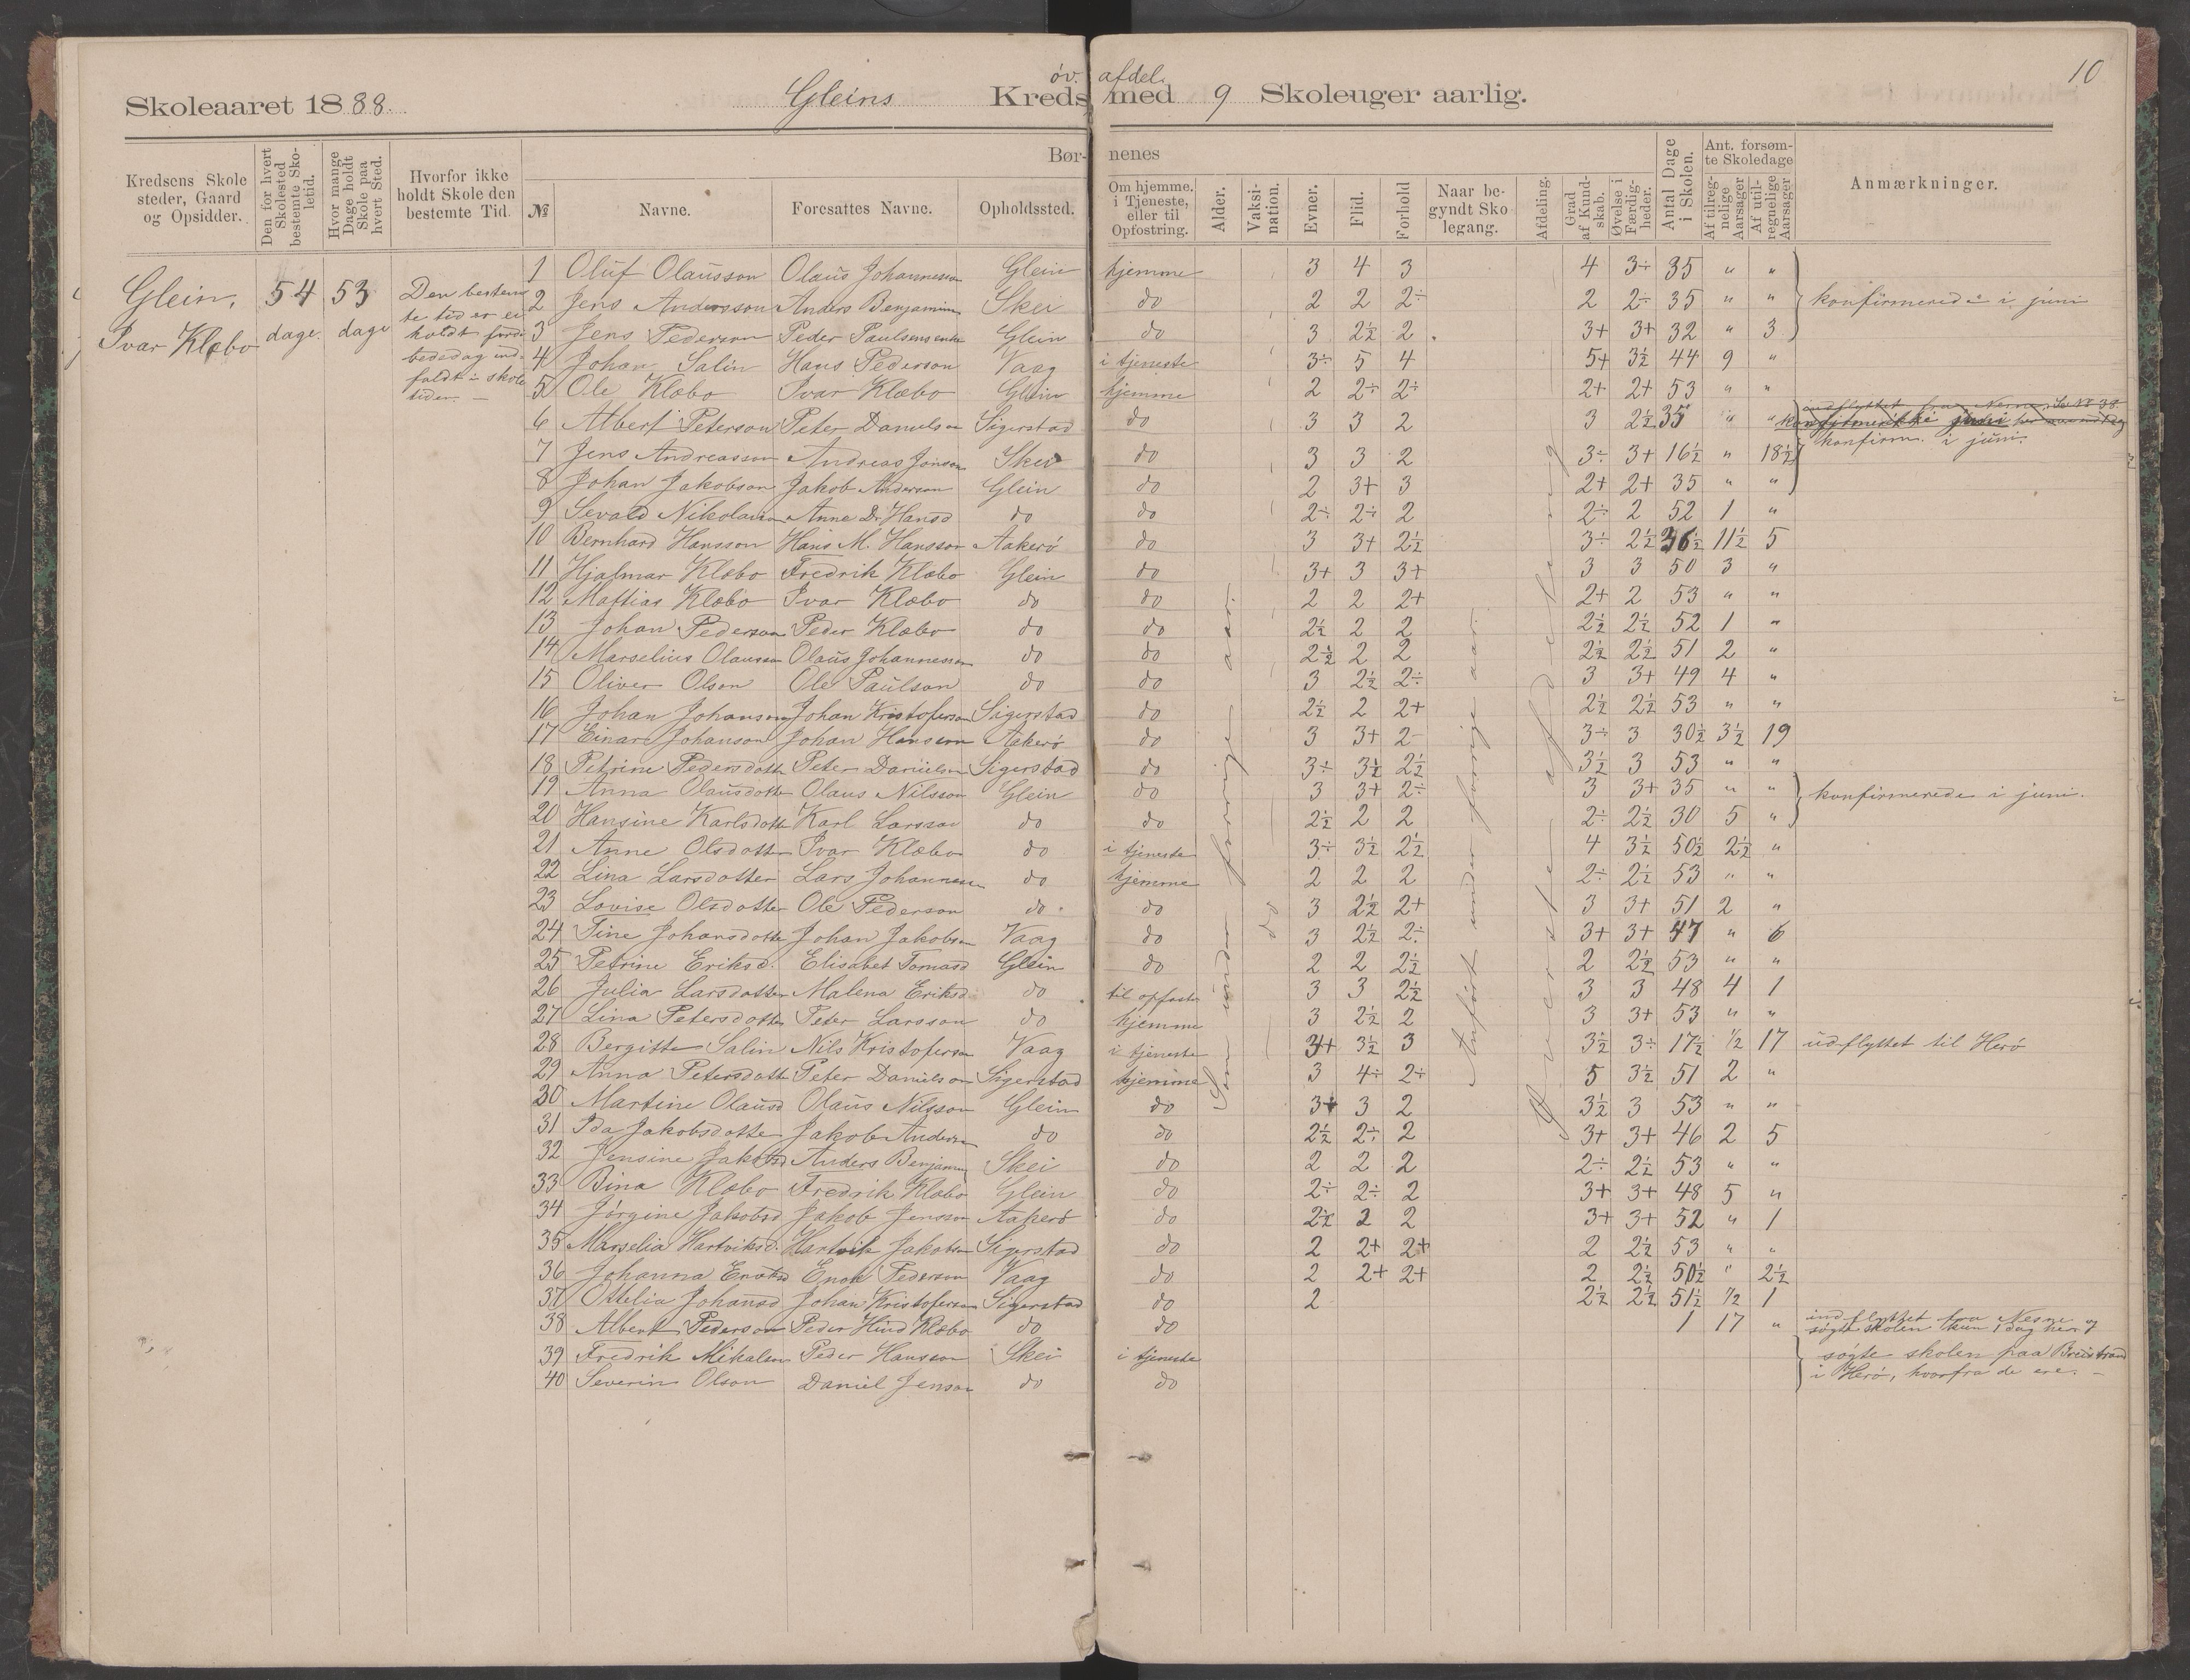 10
Skoleaaret 1888. Gleins Kreds øv. afdel. med 9 Skoleuger aarlig.
Kredsens Skolesteder, Gaard og Opsidder. | Den for hvert Skolested bestemte Skoletid. | Hvor mange Dage holdt Skole paa hvert Sted. | Hvorfor ikke holdt Skole den bestemte Tid. | Børnenes
№ | Navne. | Foresattes Navne. | Opholdssted. | Om hjemme, i Tjeneste, eller til Opfostring. | Alder. | Vaksination. | Evner. | Flid. | Forhold | Naar begyndt Skolegang. | Afdeling. | Grad af Kundskab. | Øvelse i Færdigheder. | Antal Dage i Skolen. | Ant. forsømte Skoledage | Af tilregnelige Aarsager | Af utilregnelige Aarsager | Anmærkninger.
Glein, Ivar Klæbo | 54 dage. | 53 dage
Den bestem
te tid er ei
holdt fordi
bededag ind-
faldt i skole
tiden. —
Som under forrige aar.
do
Anført under forrige aar.
Øverste afdeling
1 Oluf Olausson | Olaus Johannesson | Glein | hjemme | 3 | 4 | 3 | 4 | 3÷ | 35 | " | "
2 Jens Andersson | Anders Benjamins | Skei | do | 2 | 2 | 2÷ | 2 | 2÷ | 35 | " | " | konfirmerede i juni
3 Jens Pederson | Peder Paulsens enke | Glein | do | 3 | 2½ | 2 | 3+ | 3+ | 32 | " | 3
4 Johan Salin | Hans Pederson | Vaag | i tjeneste | 3÷ | 5 | 4 | 5+ | 3½ | 44 | 9 | "
5 Ole Klæbo | Ivar Klæbo | Glein | hjemme | 2 | 2÷ | 2÷ | 2+ | 2+ | 53 | " | "
6 Albert Peterson | Peter Danielson | Sigerstad | do | 3 | 3 | 2 | 3 | 2½ | 35 | " | " | indflyttet fra Nesne, Se № 38.
7 Jens Andreasson | Andreas Jonson | Skei | do | 3 | 3 | 2 | 3÷ | 3+ | 16½ | " | 18½ | konfirm. i juni.
8 Johan Jakobson | Jakob Anderson | Glein | do | 2 | 3+ | 3 | 2+ | 2+ | 35 | " | "
9 Sevald Nikolaison | Anne D. Hansd | do | do | 2÷ | 2÷ | 2 | 2÷ | 2 | 52 | 1 | "
10 Bernhard Hansson | Hans M. Hansson | Aakerø | do | 3 | 3+ | 2½ | 3÷ | 2½ | 36½ | 11½ | 5
11 Hjalmar Klæbo | Fredrik Klæbo | Glein | do | 3+ | 3 | 3+ | 3 | 3 | 50 | 3 | "
12 Mattias Klæbo | Ivar Klæbo | do | do | 2 | 2 | 2+ | 2+ | 2 | 53 | " | "
13 Johan Pederson | Peder Klæbo | do | do | 2½ | 2 | 2 | 2½ | 2½ | 52 | 1 | "
14 Marselius Olausson | Olaus Johannesson | do | do | 2½ | 2 | 2 | 2½ | 2½ | 51 | 2 | "
15 Oliver Olson | Ole Paulson | do | do | 3 | 2½ | 2÷ | 3 | 3+ | 49 | 4 | "
16 Johan Johanson | Johan Kristoferson | Sigerstad | do | 2½ | 2 | 2+ | 2½ | 2½ | 53 | " | "
17 Einar Johanson | Johan Hansson | Aakerø | do | 3 | 3+ | 2 | 3÷ | 3 | 30½ | 3½ | 19
18 Petrine Pedersdotter | Peter Danielson | Sigerstad | do | 3÷ | 3½ | 2½ | 3½ | 3 | 53 | " | "
19 Anna Olausdotter | Olaus Nilsson | Glein | do | 3 | 3+ | 2÷ | 3 | 3+ | 35 | " | " | konfirmerede i juni.
20 Hansine Karlsdotter | Karl Larsson | do | do | 2½ | 2 | 2 | 2÷ | 2½ | 30 | 5 | "
21 Anne Olsdotter | Ivar Klæbo | do | i tjeneste | 3÷ | 3½ | 2½ | 4 | 3½ | 50½ | 2½ | "
22 Lina Larsdotter | Lars Johannesen | do | hjemme | 2 | 2 | 2 | 2÷ | 2½ | 53 | " | "
23 Lovise Olsdotter | Ole Pederson | do | do | 3 | 2½ | 2+ | 3 | 3+ | 51 | 2 | "
24 Tine Johansdotter | Johan Jakobson | Vaag | do | 3 | 2½ | 2÷ | 3+ | 3+ | 47 | " | 6
25 Petrine Eriksd. | Elisabet Tomasd | Glein | do | 2 | 2 | 2½ | 2 | 2½ | 53 | " | "
26 Julia Larsdotter | Malena Eriksd. | do | til opfostr | 3 | 3 | 2½ | 3 | 3 | 48 | 4 | 1
27 Lina Petersdotter | Peter Larsson | do | hjemme | 3 | 2½ | 2 | 3 | 3+ | 53 | " | "
28 Bergitte Salin | Nils Kristoferson | Vaag | i tjeneste | 3+ | 3½ | 3 | 3½ | 3÷ | 17½ | ½ | 17 | udflyttet til Herø
29 Anna Petersdotter | Peter Danielson | Sigerstad | hjemme | 3 | 4÷ | 2÷ | 5 | 3½ | 51 | 2 | "
30 Martine Olausd | Olaus Nilsson | Glein | do | 3+ | 3 | 2 | 3½ | 3 | 53 | " | "
31 Ida Jakobsdotter | Jakob Anderson | do | do | 2½ | 2÷ | 2 | 3+ | 3+ | 46 | 2 | 5
32 Jensine Jakobsd | Anders Benjamins | Skei | do | 2 | 2 | 2 | 2÷ | 2½ | 53 | " | "
33 Bina Klæbo | Fredrik Klæbo | Glein | do | 2÷ | 2÷ | 2 | 3+ | 3+ | 48 | 5 | "
34 Jørgine Jakobsd | Jakob Jensson | Aakerø | do | 2½ | 2 | 2 | 3+ | 3+ | 52 | " | 1
35 Marselia Hartviksd. | Hartvik Jakobson | Sigerstad | do | 2 | 2+ | 2+ | 2 | 2½ | 53 | " | "
36 Johanna Enoksd | Enok Pederson | Vaag | do | 2 | 2+ | 2+ | 2 | 2½ | 50½ | " | 2½
37 Ottelia Johansd | Johan Kristoferson | Sigerstad | do | 2 | 2½ | 2½ | 51½ | ½ | 1
38 Albert Pederson | Peder Hind Klæbo | do | do | 1 | 17 | " | indflyttet fra Nesne og søgte skolen kun 1 dag her
39 Fredrik Mikalson | Peder Hansson | Skei | i tjeneste | søgte skolen paa Breistrand
40 Severin Olson | Daniel Jenson | do | do | i Herø, hvorfra de ere. —